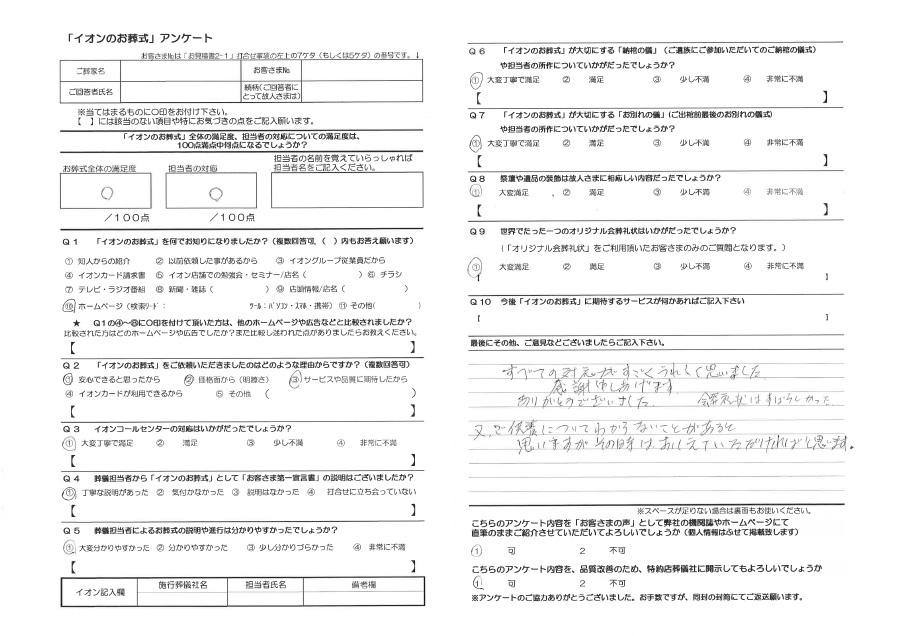 「イオンのお葬式」アンケート
お客さま№は「お見積書2-1」打合せ事項の左上の7ケタ（もしくは5ケタ）の番号です。↓
ご葬家名 お客さま№
ご回答者氏名 続柄（ご回答者にとって故人さまは）
※当てはまるものに○印をお付け下さい。
【　】には該当のない項目や特にお気づきの点をご記入願います。
「イオンのお葬式」全体の満足度、担当者の対応についての満足度は、
100点満点中何点になるでしょうか？
お葬式全体の満足度 担当者の対応 担当者の名前を覚えていらっしゃれば
担当者名をご記入ください。
○ ○
／100点 ／100点
Q1 「イオンのお葬式」を何でお知りになりましたか？（複数回答可、（　）内もお答え願います）
① 知人からの紹介 ② 以前依頼した事があるから ③ イオングループ従業員だから
④ イオンカード請求書 ⑤ イオン店舗での勉強会・セミナー/店名（　） ⑥ チラシ
⑦ テレビ・ラジオ番組 ⑧ 新聞・雑誌（　） ⑨ 店頭情報/店名（　）
⑩ ホームページ（検索ﾜｰﾄﾞ：　ﾂｰﾙ：ﾊﾟｿｺﾝ・ｽﾏﾎ・携帯） ⑪ その他（　）
★ Q1の④～⑩に○印を付けて頂いた方は、他のホームページや広告などと比較されましたか？
比較された方はどのホームページや広告でしたか？また比較し迷われた点がありましたらお教えください。
【　】
Q2 「イオンのお葬式」をご依頼いただきましたのはどのような理由からですか？（複数回答可）
① 安心できると思ったから ② 価格面から（明瞭さ） ③ サービスや品質に期待したから
④ イオンカードが利用できるから ⑤ その他（　）
【　】
Q3 イオンコールセンターの対応はいかがだったでしょうか？
① 大変丁寧で満足 ② 満足 ③ 少し不満 ④ 非常に不満
【　】
Q4 葬儀担当者から「イオンのお葬式」として「お客さま第一宣言書」の説明はございましたか？
① 丁寧な説明があった ② 気付かなかった ③ 説明はなかった ④ 打合せに立ち会っていない
【　】
Q5 葬儀担当者によるお葬式の説明や進行は分かりやすかったでしょうか？
① 大変分かりやすかった ② 分かりやすかった ③ 少し分かりづらかった ④ 非常に不満
【　】
イオン記入欄 施行葬儀社名 担当者氏名 備考欄
Q6 「イオンのお葬式」が大切にする「納棺の儀」（ご遺族にご参加いただいてのご納棺の儀式）
や担当者の所作についていかがだったでしょうか？
① 大変丁寧で満足 ② 満足 ③ 少し不満 ④ 非常に不満
【　】
Q7 「イオンのお葬式」が大切にする「お別れの儀」（ご出棺前最後のお別れの儀式）
や担当者の所作についていかがだったでしょうか？
① 大変丁寧で満足 ② 満足 ③ 少し不満 ④ 非常に不満
【　】
Q8 祭壇や遺品の装飾は故人さまに相応しい内容だったでしょうか？
① 大変満足 ② 満足 ③ 少し不満 ④ 非常に不満
【　】
Q9 世界でたった一つのオリジナル会葬礼状はいかがだったでしょうか？
（「オリジナル会葬礼状」をご利用頂いたお客さまのみのご質問となります。）
① 大変満足 ② 満足 ③ 少し不満 ④ 非常に不満
【　】
Q10 今後「イオンのお葬式」に期待するサービスが何かあればご記入下さい
【　】
最後にその他、ご意見などございましたらご記入下さい。
すべての対応がすごくうれしく思いました
感謝申しあげます
ありがとうございました。 会葬礼状はすばらしかった
又、ご供養についてわからないことがあると
思いますがその時は、おしえていただければと思います。
※スペースが足りない場合は裏面もお使いください。
こちらのアンケート内容を「お客さまの声」として弊社の機関誌やホームページにて
直筆のままご紹介させていただいてよろしいでしょうか（個人情報はふせて掲載致します）
① 可 2 不可
こちらのアンケート内容を、品質改善のため、特約店葬儀社に開示してもよろしいでしょうか
① 可 2 不可
※アンケートのご協力ありがとうございました。お手数ですが、同封の封筒にてご返送願います。